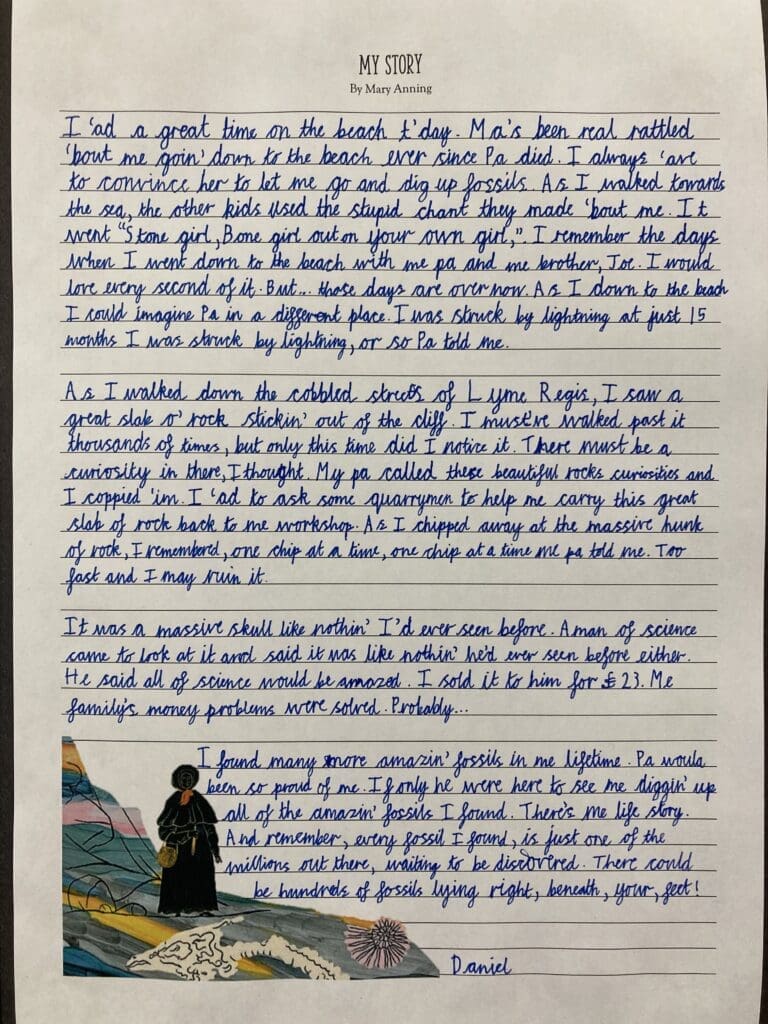 MY STORY
By Mary Anning
I 'ad a great time on the beach t'day. Ma's been real rattled
'bout me goin' down to the beach ever since Pa died. I always 'ave
to convince her to let me go and dig up fossils. As I walked towards
the sea, the other kids used the stupid chant they made 'bout me. It
went "Stone girl, Bone girl out on your own girl,". I remember the days
when I went down to the beach with me pa and me brother, Joe. I would
love every second of it. But... those days are over now. As I down to the beach
I could imagine Pa in a different place. I was struck by lightning at just 15
months I was struck by lightning, or so Pa told me.
As I walked down the cobbled streets of Lyme Regis, I saw a
great slab o' rock stickin' out of the cliff. I must've walked past it
thousands of times, but only this time did I notice it. There must be a
curiosity in there, I thought. My pa called these beautiful rocks curiosities and
I coppied 'im. I 'ad to ask some quarrymen to help me carry this great
slab of rock back to me workshop. As I chipped away at the massive hunk
of rock, I remembered, one chip at a time, one chip at a time me pa told me. Too
fast and I may ruin it.
It was a massive skull like nothin' I'd ever seen before. A man of science
came to look at it and said it was like nothin' he'd ever seen before either.
He said all of science would be amazed. I sold it to him for £23. Me
family's money problems were solved. Probably...
I found many more amazin' fossils in me lifetime. Pa would
been so proud of me. If only he were here to see me diggin' up
all of the amazin' fossils I found. There's me life story.
And remember, every fossil I found, is just one of the
millions out there, waiting to be discovered. There could
be hundreds of fossils lying right, beneath, your, feet!
Daniel